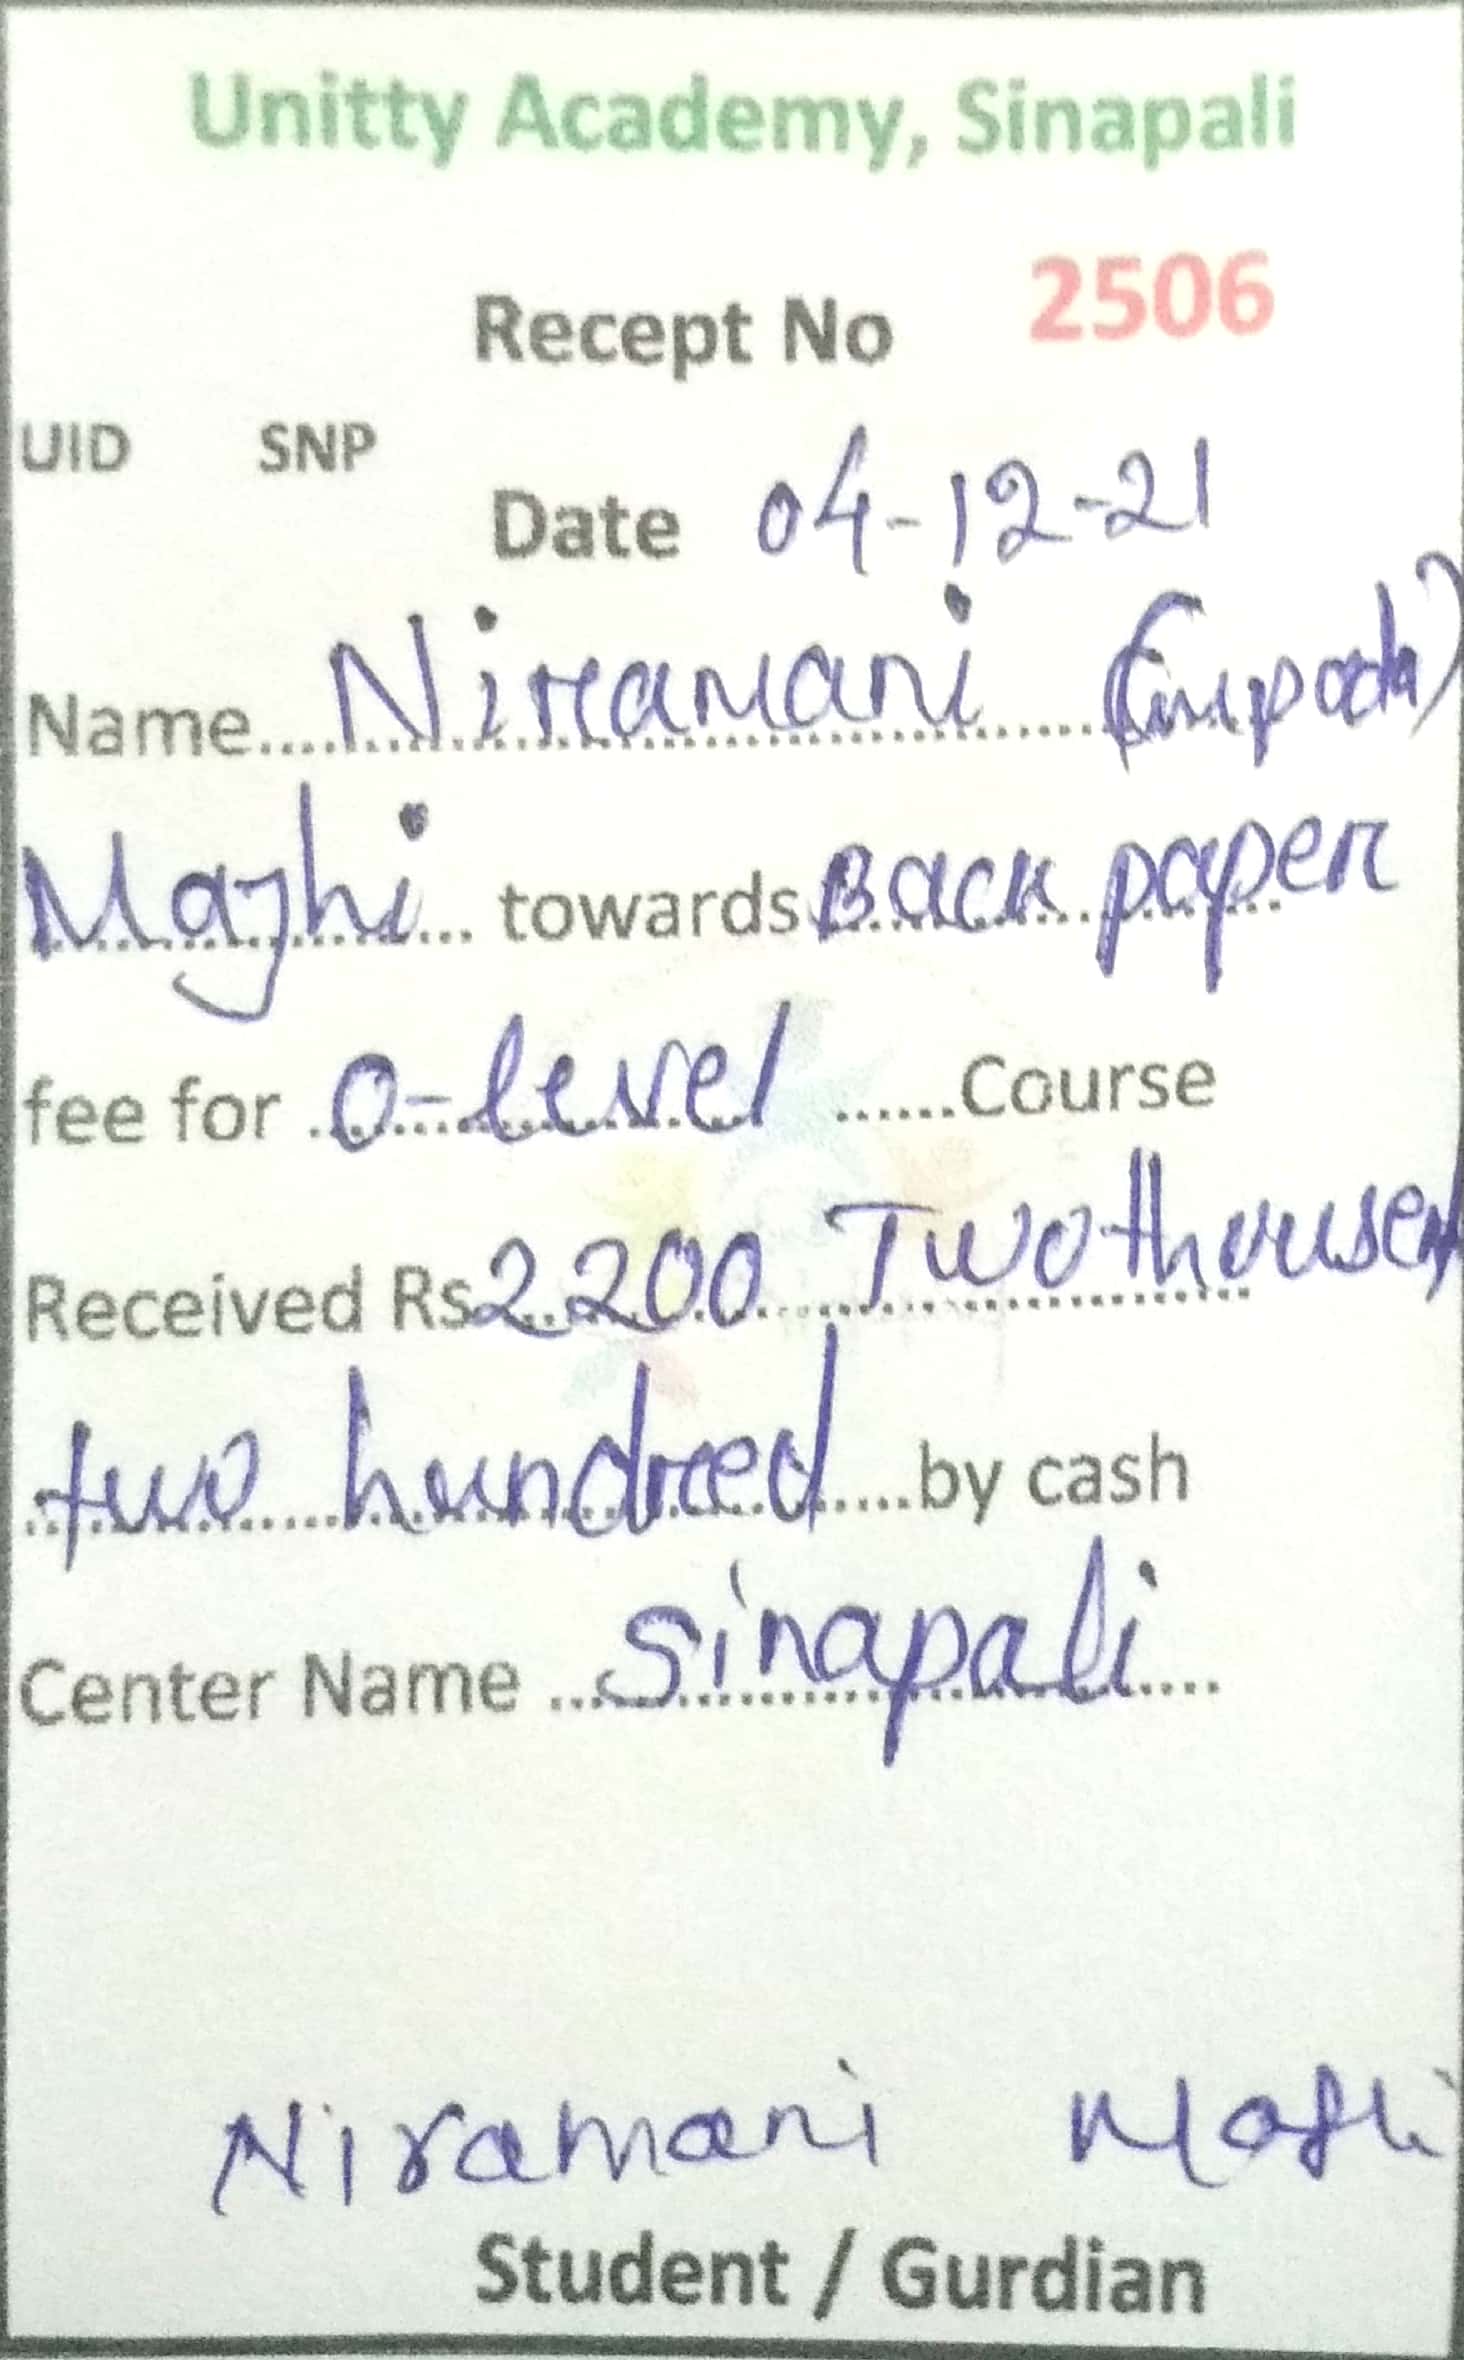 Unitty Academy, Sinapali
Recept No 2506
UID SNP
Date 04-12-21
Name Niramani
Majhi towards Back paper
fee for O-level Course
Received Rs 2200 Two thousen
two hundred by cash
Center Name Sinapali
Niramani
Student / Gurdian